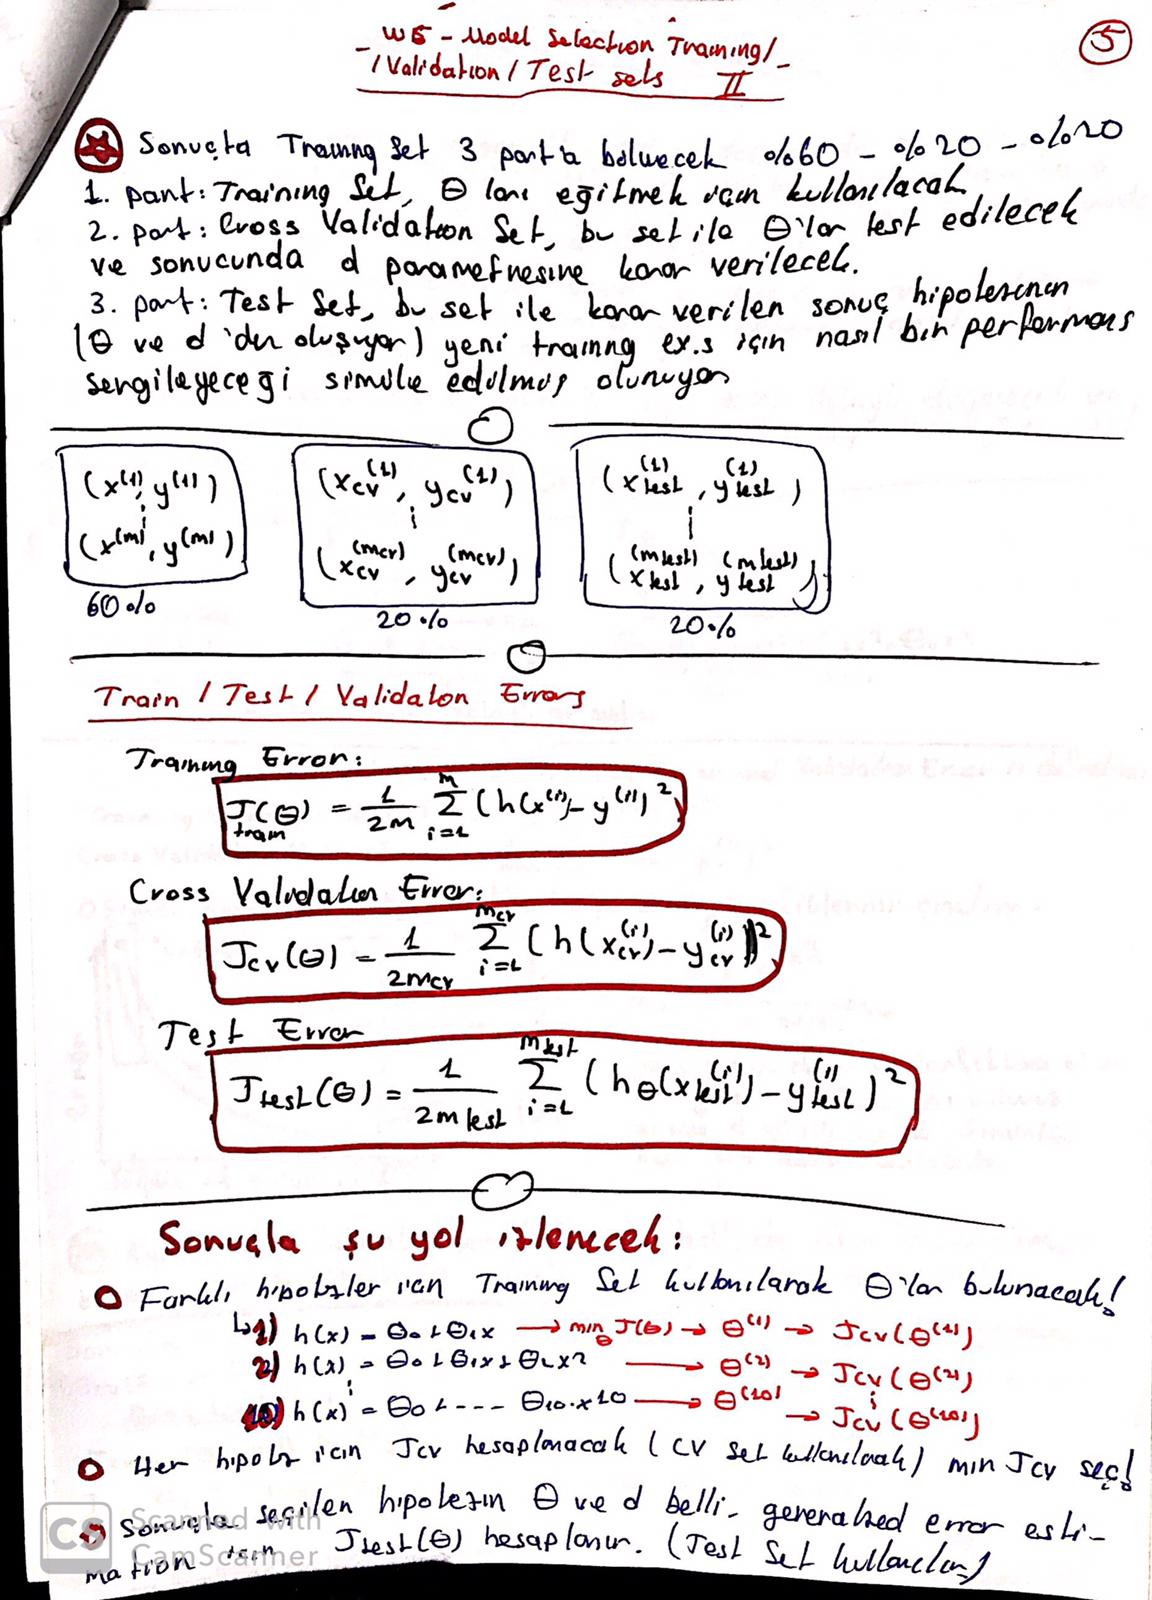 W6 - Model Selection Training/
/Validation/Test sets II
5
Sonuçta Training Set 3 part'a bölünecek %60 - %20 - %20
1. part: Training Set, Θ ları eğitmek için kullanılacak
2. part: Cross Validation Set, bu set ile Θ'lar test edilecek
ve sonucunda d parametresine karar verilecek.
3. part: Test Set, bu set ile karar verilen sonuç hipotezinin
(Θ ve d 'den oluşuyor) yeni training ex.s için nasıl bir performans
sergileyeceği simüle edilmiş olunuyor
(x^(1), y^(1)) (x_cv^(1), y_cv^(1)) (x_test^(1), y_test^(1))
(x^(m), y^(m)) (x_cv^(mcv), y_cv^(mcv)) (x_test^(mtest), y_test^(mtest))
60% 20% 20%
Train / Test / Validation Errors
Training Error:
J_train(Θ) = 1/2m Σ_{i=1}^{m} (h(x^(i)) - y^(i))^2
Cross Validation Error:
Jcv(Θ) = 1/2mcv Σ_{i=1}^{mcv} (h(x_cv^(i)) - y_cv^(i))^2
Test Error
Jtest(Θ) = 1/2mtest Σ_{i=1}^{mtest} (hΘ(x_test^(i)) - y_test^(i))^2
Sonuçta şu yol izlenecek:
Farklı hipotezler için Training Set kullanılarak Θ'lar bulunacak!
↳ 1) h(x) = Θ0 + Θ1x → min_Θ J(Θ) → Θ^(1) → Jcv(Θ^(1))
2) h(x) = Θ0 + Θ1x + Θ2x2 → Θ^(2) → Jcv(Θ^(2))
10) h(x) = Θ0 + --- Θ10.x10 → Θ^(10) → Jcv(Θ^(10))
Her hipotez için Jcv hesaplanacak (CV set kullanılarak) min Jcv seç!
Sonuçta seçilen hipotezin Θ ve d belli. generalized error esti-
mation için Jtest(Θ) hesaplanır. (Test Set kullanılır)
CS Scanned with
CamScanner